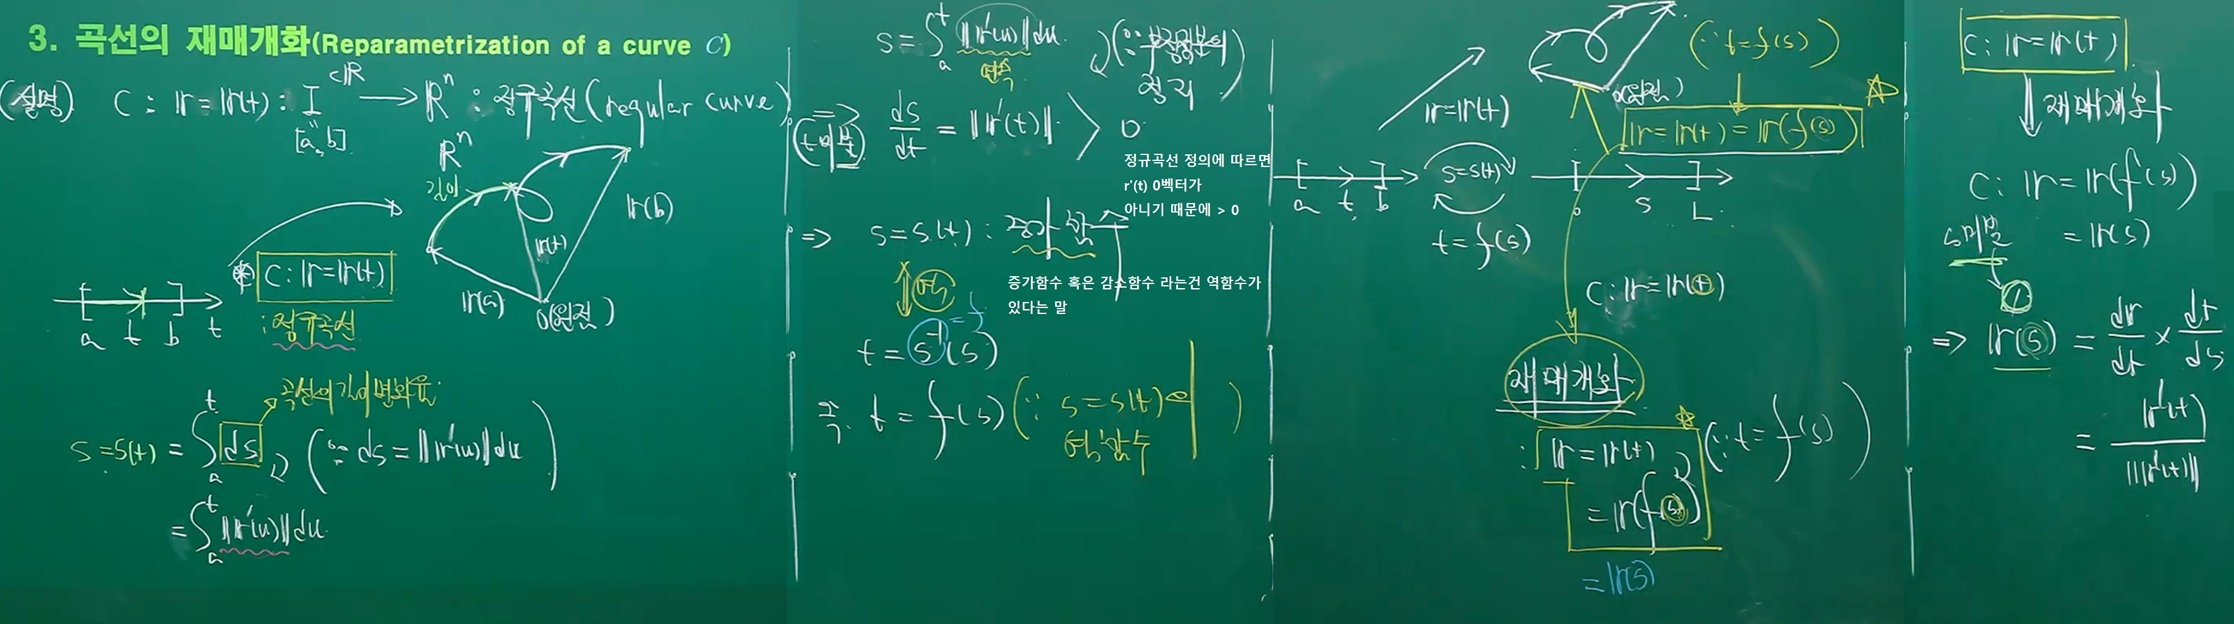 3. 곡선의 재매개화(Reparametrization of a curve C)
(설명) C : r = r(t) : I ⊂ ℝ → ℝⁿ : 정규곡선(regular curve)
[a, b]
ℝⁿ
길이
r(b)
r(t)
r(a)
0(원점)
C : r = r(t)
: 정규곡선
a t b t
곡선의 길이 변화율
s = s(t) = ∫ₐᵗ ds (∵ ds = ||r'(u)||du)
= ∫ₐᵗ ||r'(u)||du
s = ∫ₐᵗ ||r'(u)||du
연속
(∵ 부정적분의 정리)
⇒ (t미분) ds/dt = ||r'(t)|| > 0
정규곡선 정의에 따르면
r'(t) 0벡터가
아니기 때문에 > 0
⇒ s = s(t) : 증가함수
증가함수 혹은 감소함수 라는건 역함수가
있다는 말
역
t = s⁻¹(s)
= f
즉. t = f(s) (∵ s = s(t)의 역함수)
0(원점)
(∵ t = f(s))
r = r(t)
r = r(t) = r(f(s))
a t b
s = s(t)
t = f(s)
0 s L
C : r = r(t)
재매개화
: r = r(t)
= r(f(s)) (∵ t = f(s))
= r(s)
C : r = r(t)
재매개화
C : r = r(f(s))
= r(s)
s미분
⇒ r(s) = dr/dt × dt/ds
= r'(t)/||r'(t)||